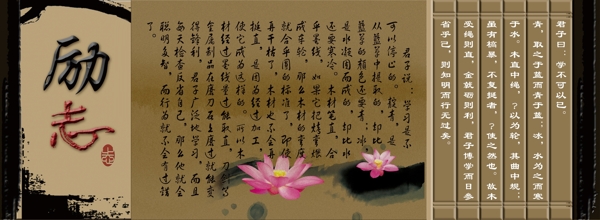 励志
君子说：学习是不
可以停止的。靛青，是
从蓝草中提取的，却比
蓝草的颜色还要青；冰，
是水凝固而成的，却比水
还要寒冷。木材笔直，合
乎墨线，如果它把烤弯煨
成车轮，那么木材的弯度
就合乎圆的标准了，即使
再干枯了，木材也不会再
挺直，是因为经过加工，
使它成为这样的。所以木
材经过墨线量过就能取直，刀剑等
金属制品在磨刀石上磨过就能变
得锋利，君子广泛地学习，而且
每天检查反省自己，那么他就会
聪明多智，而行为就不会有过错
了。
君子曰：学不可以已。
青，取之于蓝而青于蓝；冰，水为之而寒
于水。木直中绳，？以为轮，其曲中规；
虽有槁暴，不复挺者，？使之然也。故木
受绳则直，金就砺则利，君子博学而日参
省乎己，则知明而行无过矣。